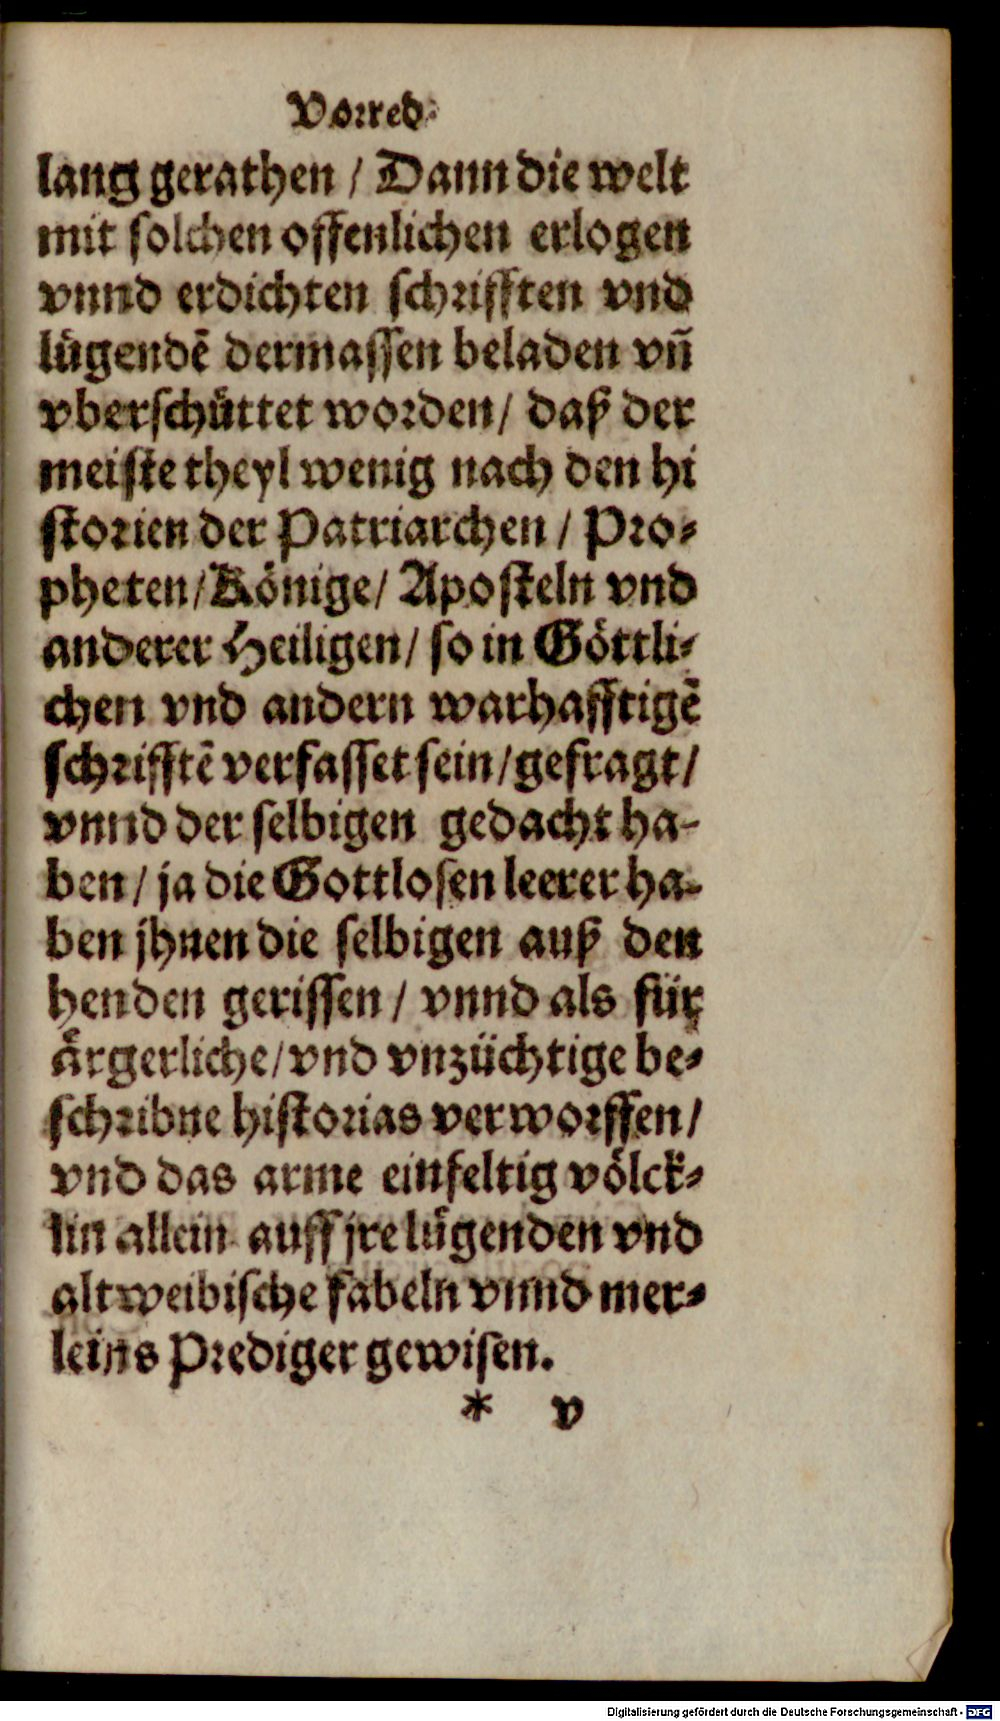 Vorred.
lang gerathen / Dann die welt
mit solchen offenlichen erlogen
vnnd erdichten schrifften vnd
lügendē dermassen beladen vñ
vberschüttet worden / daß der
meiste theyl wenig nach den hi
storien der Patriarchen / Pro-
pheten / Könige / Aposteln vnd
anderer Heiligen / so in Göttli-
chen vnd andern warhafftigē
schrifftē verfasset sein / gefragt /
vnnd der selbigen gedacht ha-
ben / ja die Gottlosen leerer ha-
ben jhnen die selbigen auß den
henden gerissen / vnnd als für
ärgerliche / vnd vnzüchtige be-
schribne historias verworffen /
vnd das arme einfeltig völck-
lin allein auff jre lügenden vnd
altweibische fabeln vnnd mer-
leins Prediger gewisen.
* v
Digitalisierung gefördert durch die Deutsche Forschungsgemeinschaft - DFG